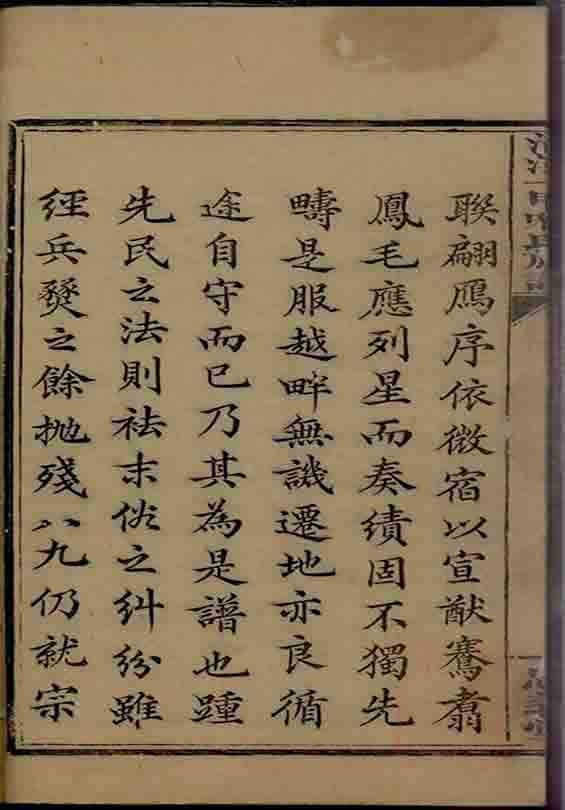 聯翩鴈序依微宿以宣猷騫翥
鳳毛應列星而奏績固不獨先
疇是服越畔無譏遷地亦良循
途自守而已乃其為是譜也踵
先民之法則袪末俗之糾紛雖
經兵燹之餘抛殘八九仍就宗